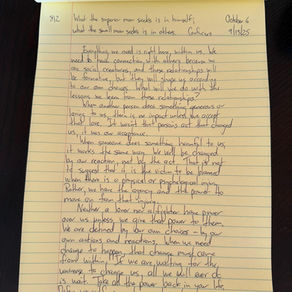 912 What the superior man seeks is in himself; October 6
what the small man seeks is in others. Confucius 9/13/25
Everything we need is right here, within us. We
need to have connection with others because we
are social creatures, and those relationships will
be formative, but they will shape us according
to our own choices. What will we do with the
lessons we learn from those relationships?
When another person does something generous or
loving to us, there is no impact unless we accept
that love. It wasn't that person's act that changed
us, it was our acceptance.
When someone does something harmful to us,
it works the same way. We will be changed
by our reaction, not by the act. That is not
to suggest that it is the victim to be blamed
when there is a physical or psychological injury.
Rather, we have the agency and the power to
move on from that injury.
Neither a lover nor a fighter have power
over us unless we give that power to them.
We are defined by our own choices - by our
own actions and reactions. When we need
change to happen, that change must come
from within. If we are waiting for the
universe to change us, all we will ever do
is wait. Take the power back in your life.